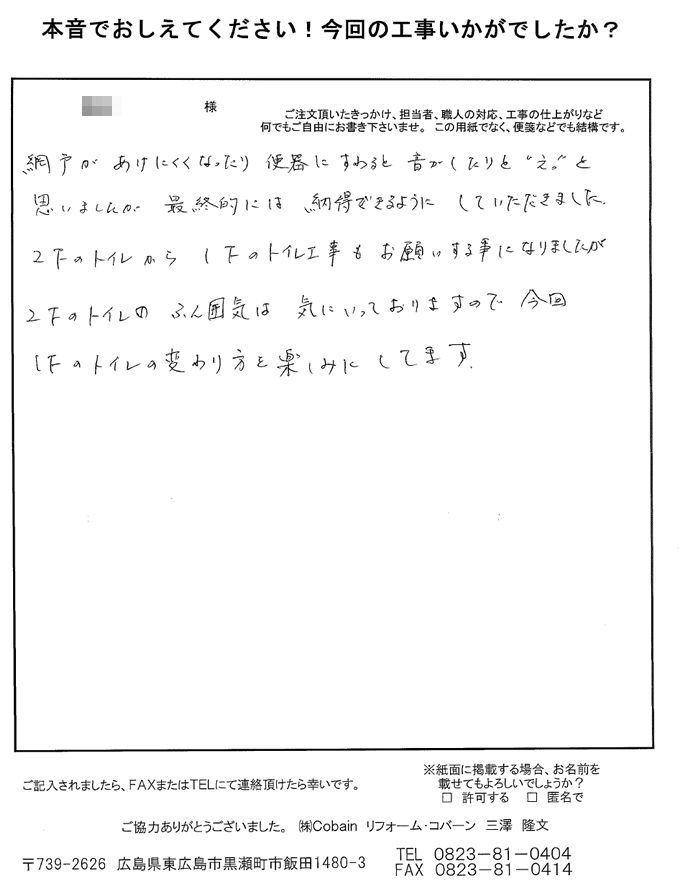 本音でおしえてください！今回の工事いかがでしたか？
様
ご注文頂いたきっかけ、担当者、職人の対応、工事の仕上がりなど
何でもご自由にお書き下さいませ。この用紙でなく、便箋などでも結構です。
網戸が あけにくくなったり 便器に すわると 音がしたりと "え。"と
思いましたが 最終的には 納得できるように していただきました。
2Fのトイレから 1Fのトイレ工事も お願いする事になりましたが
2Fのトイレの ふん囲気は 気にいっておりますので 今回
1Fのトイレの変わり方を楽しみに してます。
ご記入されましたら、FAXまたはTELにて連絡頂けたら幸いです。
※紙面に掲載する場合、お名前を
載せてもよろしいでしょうか？
□ 許可する □ 匿名で
ご協力ありがとうございました。 ㈱Cobain リフォーム・コバーン 三澤 隆文
〒739-2626 広島県東広島市黒瀬町市飯田1480-3
TEL 0823-81-0404
FAX 0823-81-0414